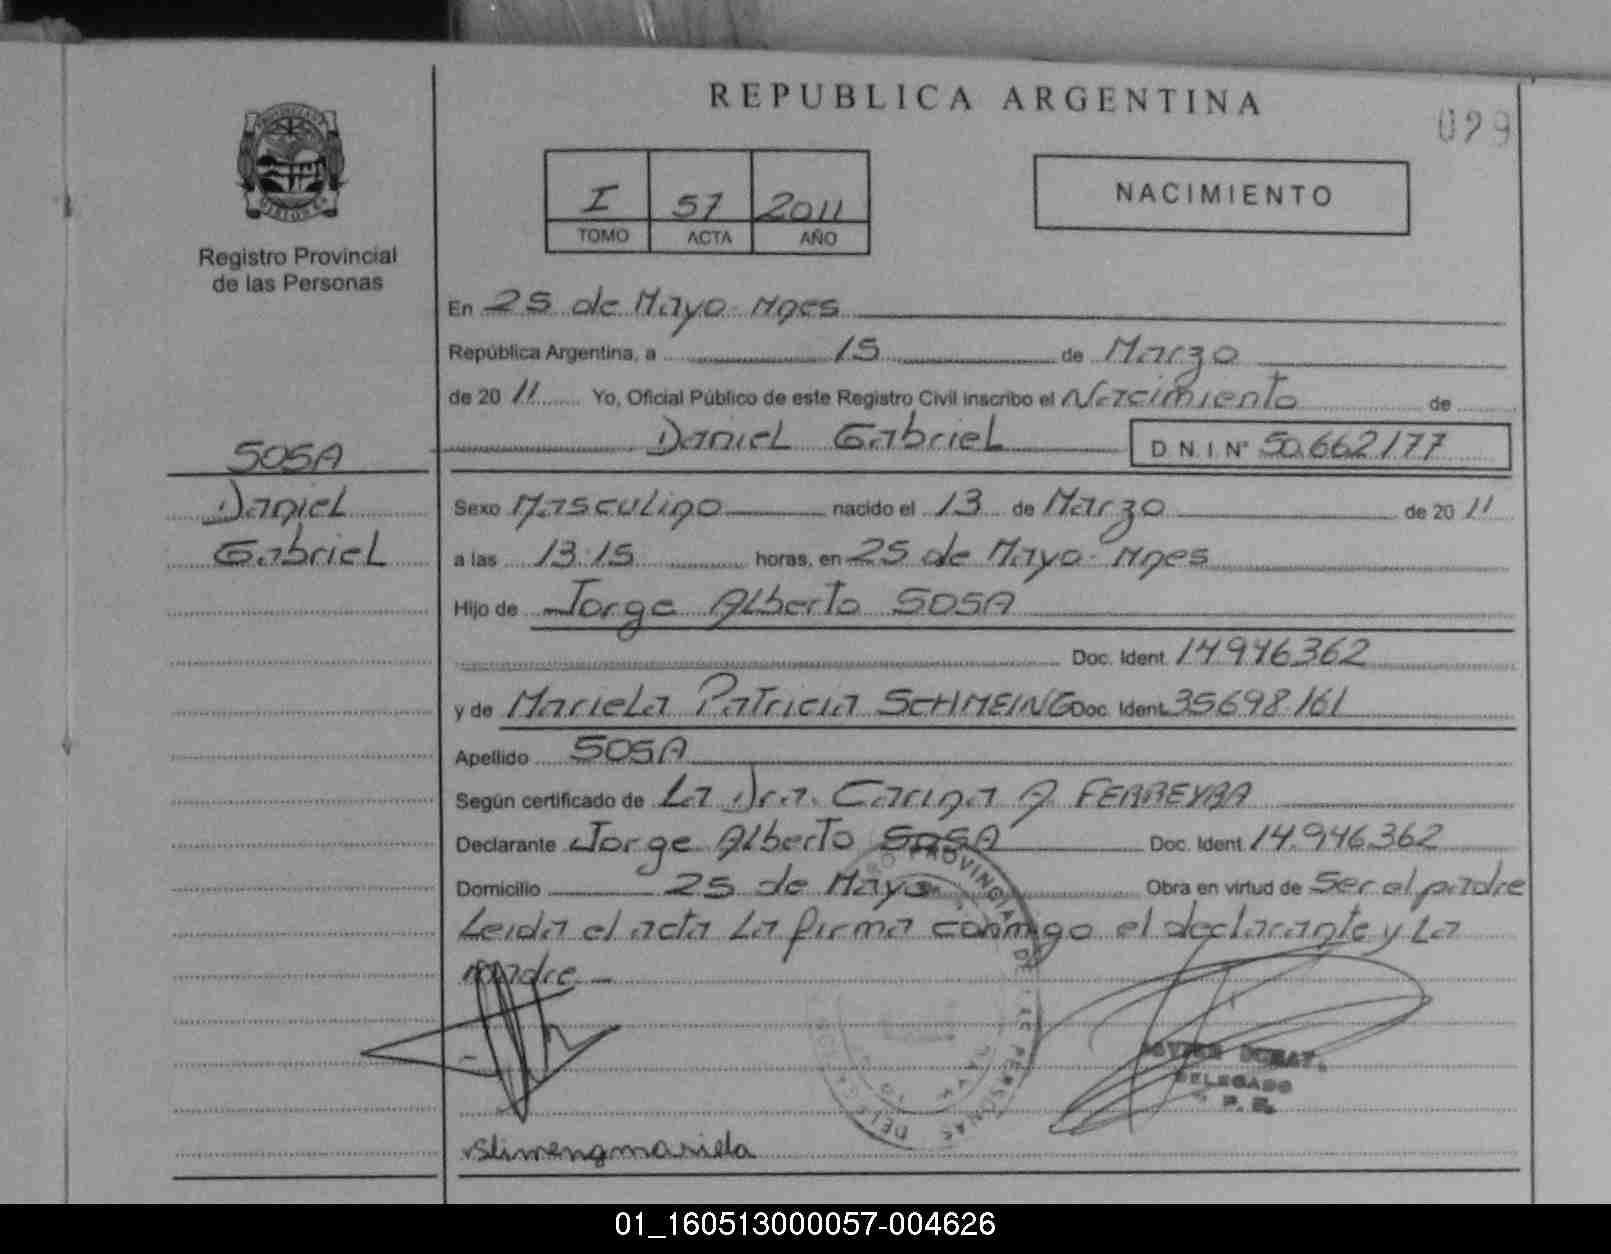 REPUBLICA ARGENTINA
029
PROVINCIA DE MISIONES
Registro Provincial
de las Personas
I 57 2011
TOMO ACTA AÑO
NACIMIENTO
En 25 de Mayo - Mnes
República Argentina, a 15 de Marzo
de 2011 Yo, Oficial Público de este Registro Civil inscribo el Nacimiento de
Daniel Gabriel D.N.I. Nº 50.662177
SOSA
Daniel
Gabriel
Sexo Masculino nacido el 13 de Marzo de 2011
a las 13:15 horas, en 25 de Mayo - Mnes
Hijo de Jorge Alberto SOSA
Doc. Ident. 14946362
y de Mariela Patricia SCHMEING Doc. Ident. 35698161
Apellido SOSA
Según certificado de La Dra. Carina A. FERREYRA
Declarante Jorge Alberto SOSA Doc. Ident. 14.946.362
Domicilio 25 de Mayo Obra en virtud de Ser el padre
Leida el acta La firma conmigo el declarante y La
madre.-
DELEGADO
Slimengmariela
01_160513000057-004626